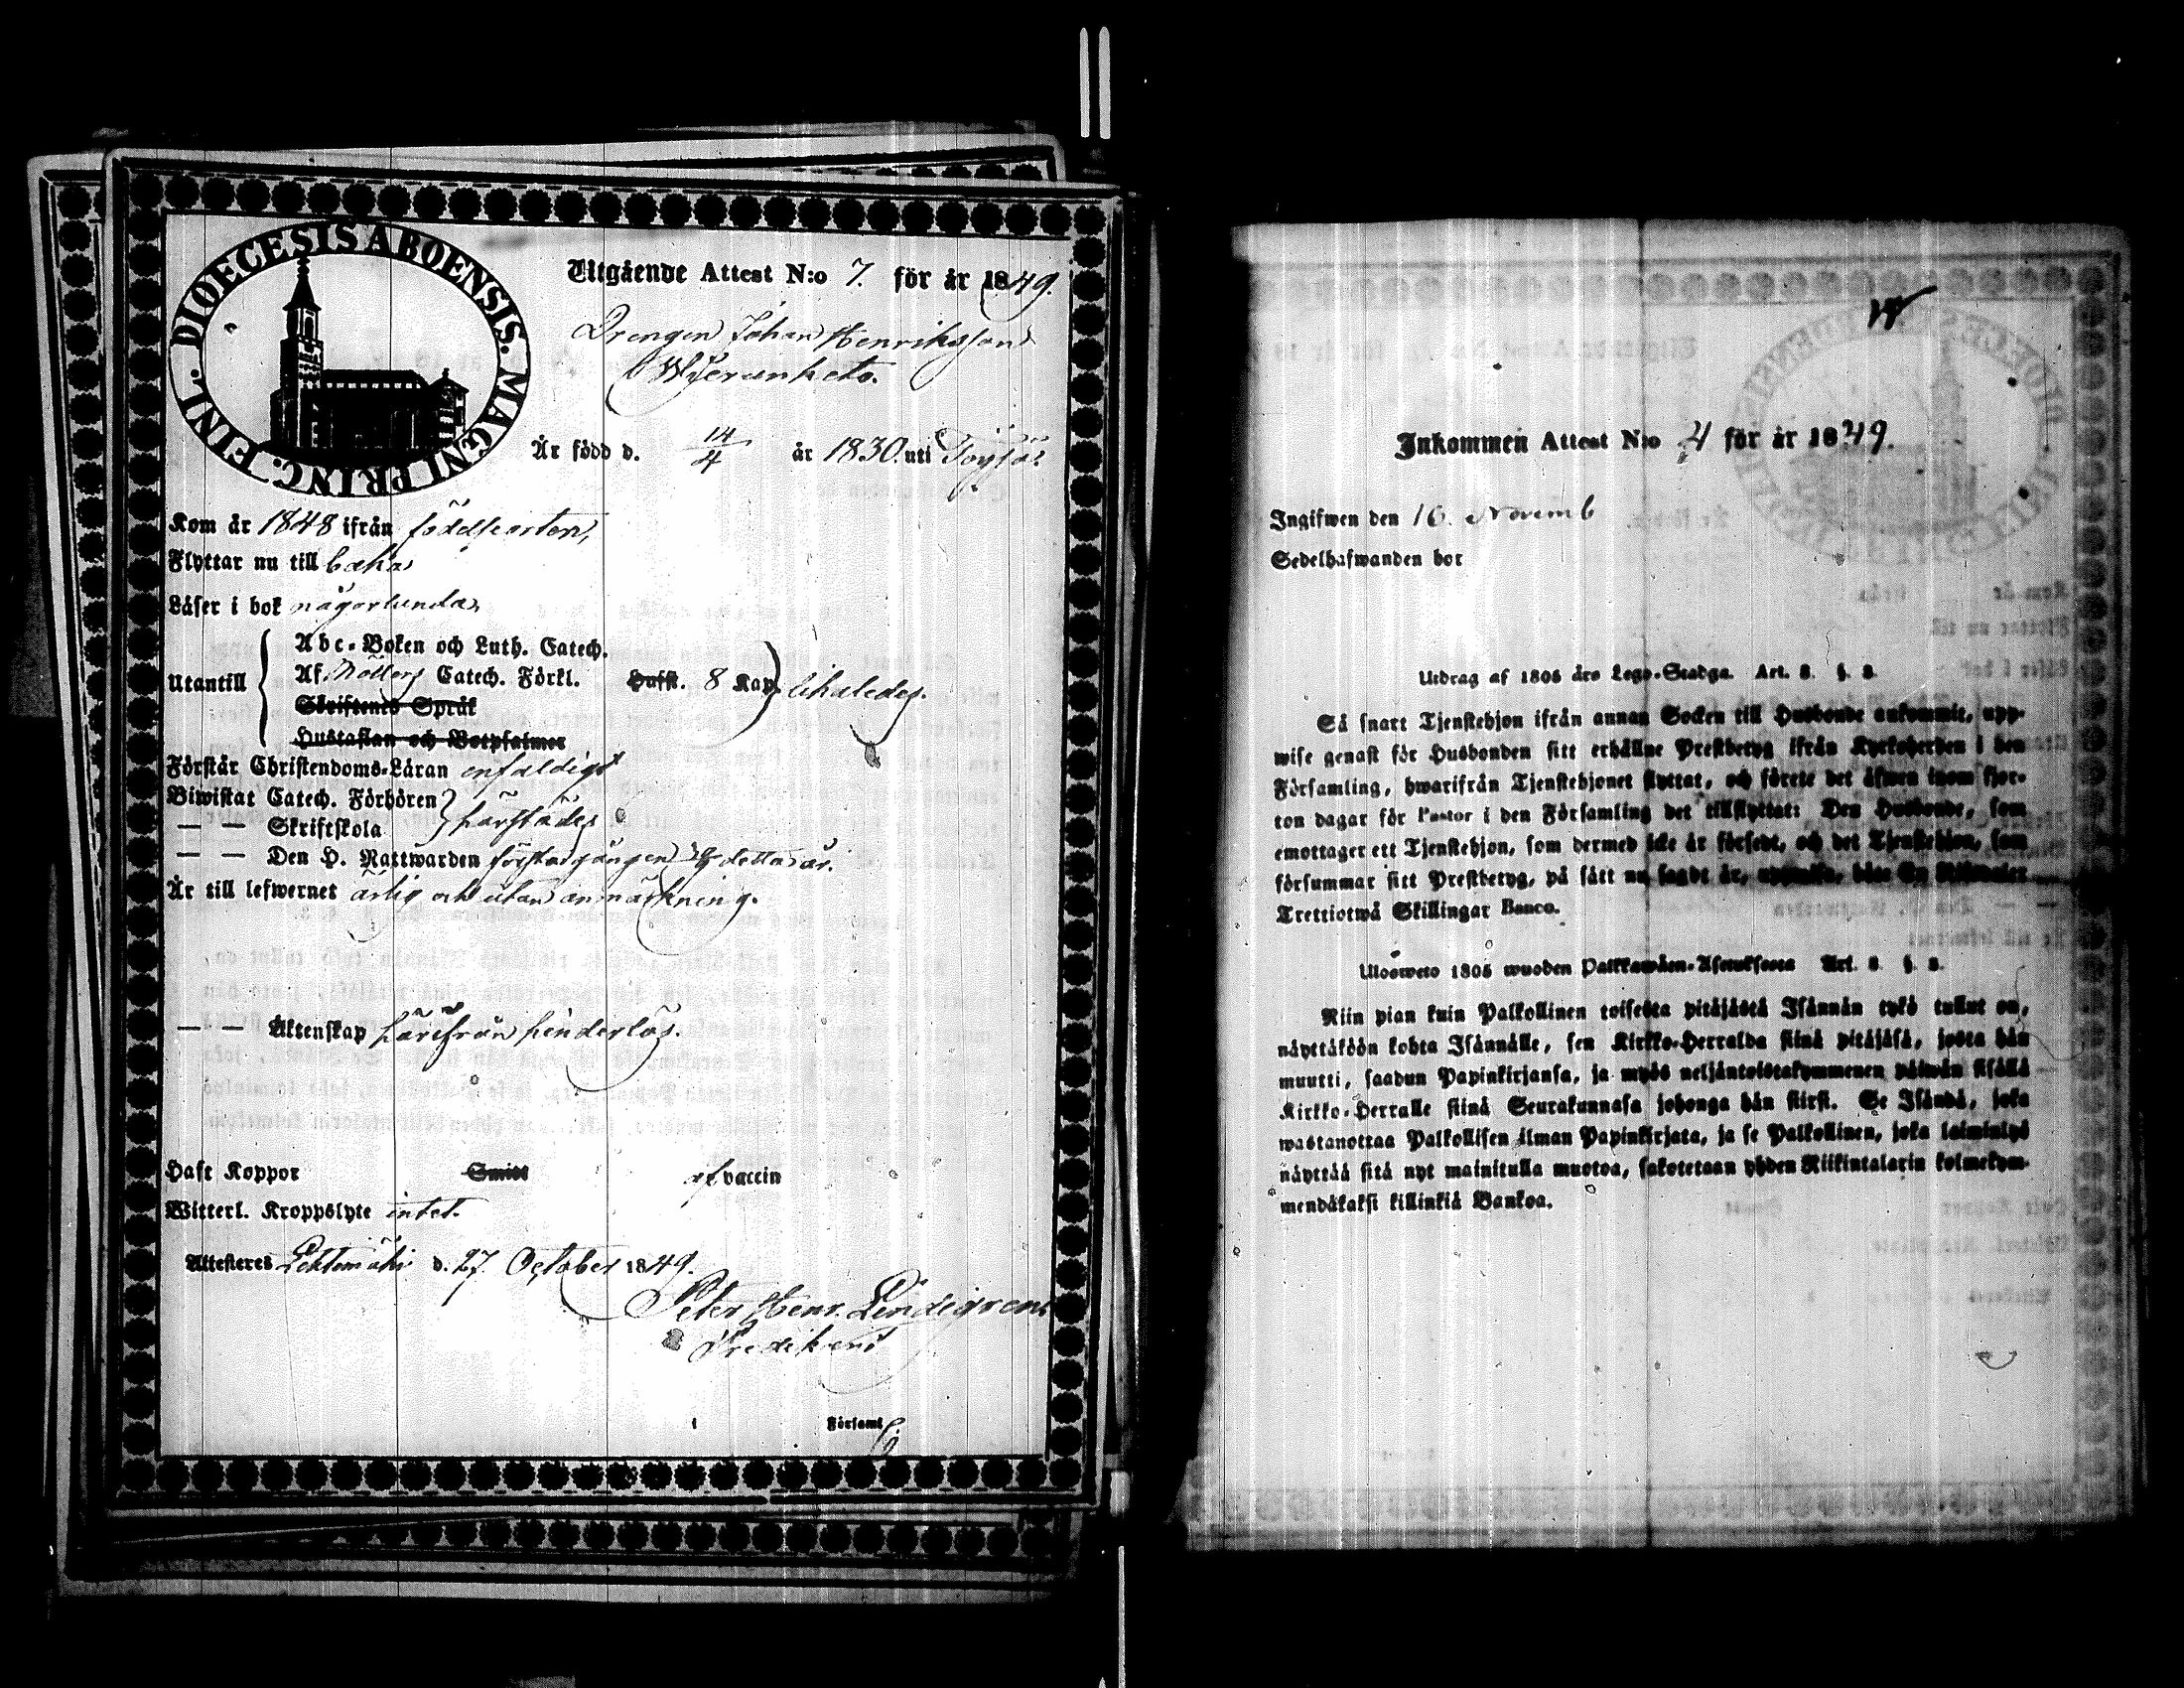 DIOECESIS ABOENSIS. MAGNI PRINC. FINL.
Utgående Attest N:o 7. för år 1849.
Drengen Johan Henriksson
Är född d. 14/4 år 1830. uti Töysä.
Kom år 1848 ifrån födelseorten,
Flyttar nu till baka
Läser i bok någorlunda,
Abc-Boken och Luth. Catech.
Utantill Af Möllers Catech. Förkl. Hufst. 8 Kap. likaledes.
Skriftenes Språk
Hustaflan och Botpsalmer
Förstår Christendoms-Läran enfaldigt
Biwistat Catech. Förhören
— — Skriftskola härstädes
— — Den H. Nattwarden första gången detta år.
Är till lefwernet ärlig och utan anmärkning.
— — Äktenskap härifrån hinderlös.
Haft Koppor Smitt af vaccin
Witterl. Kroppslyte intet.
Attesteras Lehtimäki d. 27. October 1849.
Peter Henr. Lindegren
Predikant
i Församl.
Inkommen Attest N:o 4 för år 1849.
Ingifwen den 16. Novemb
Sedelhafwanden bor
Utdrag af 1805 års Lego-Stadga. Art. 8. §. 8.
Så snart Tjenstehjon ifrån annan Socken till Husbonde ankommit, upp-
wise genast för Husbonden sitt erhållne Prestbetyg ifrån Kyrkoherden i den
Församling, hwarifrån Tjenstehjonet flyttat, och förete det äfwen inom fjor-
ton dagar för Pastor i den Församling det tillflyttat: Den Husbonde, som
emottager ett Tjenstehjon, som dermed icke är försedt, och det Tjenstehjon, som
försummar sitt Prestbetyg, på sätt nu sagdt är, uppwisa, böte En Riksdaler
Trettiotwå Skillingar Banco.
Ulosweto 1805 wuoden Palkkawäen-Asetuksesta Art. 8. §. 8.
Niin pian kuin Palkollinen toisesta pitäjästä Isännän tykö tullut on,
näyttäköön kohta Isännälle, sen Kirkko-Herralda siinä pitäjäsä, josta hän
muutti, saadun Papinkirjansa, ja myös neljäntoistakymmenen päiwän sisällä
Kirkko-Herralle siinä Seurakunnasa johonga hän siirsi. Se Isändä, joka
wastanottaa Palkollisen ilman Papinkirjata, ja se Palkollinen, joka laiminlyö
näyttää sitä nyt mainitulla muotoa, sakotetaan yhden Riikintalarin kolmekym-
mendäkaksi killinkiä Bankoa.